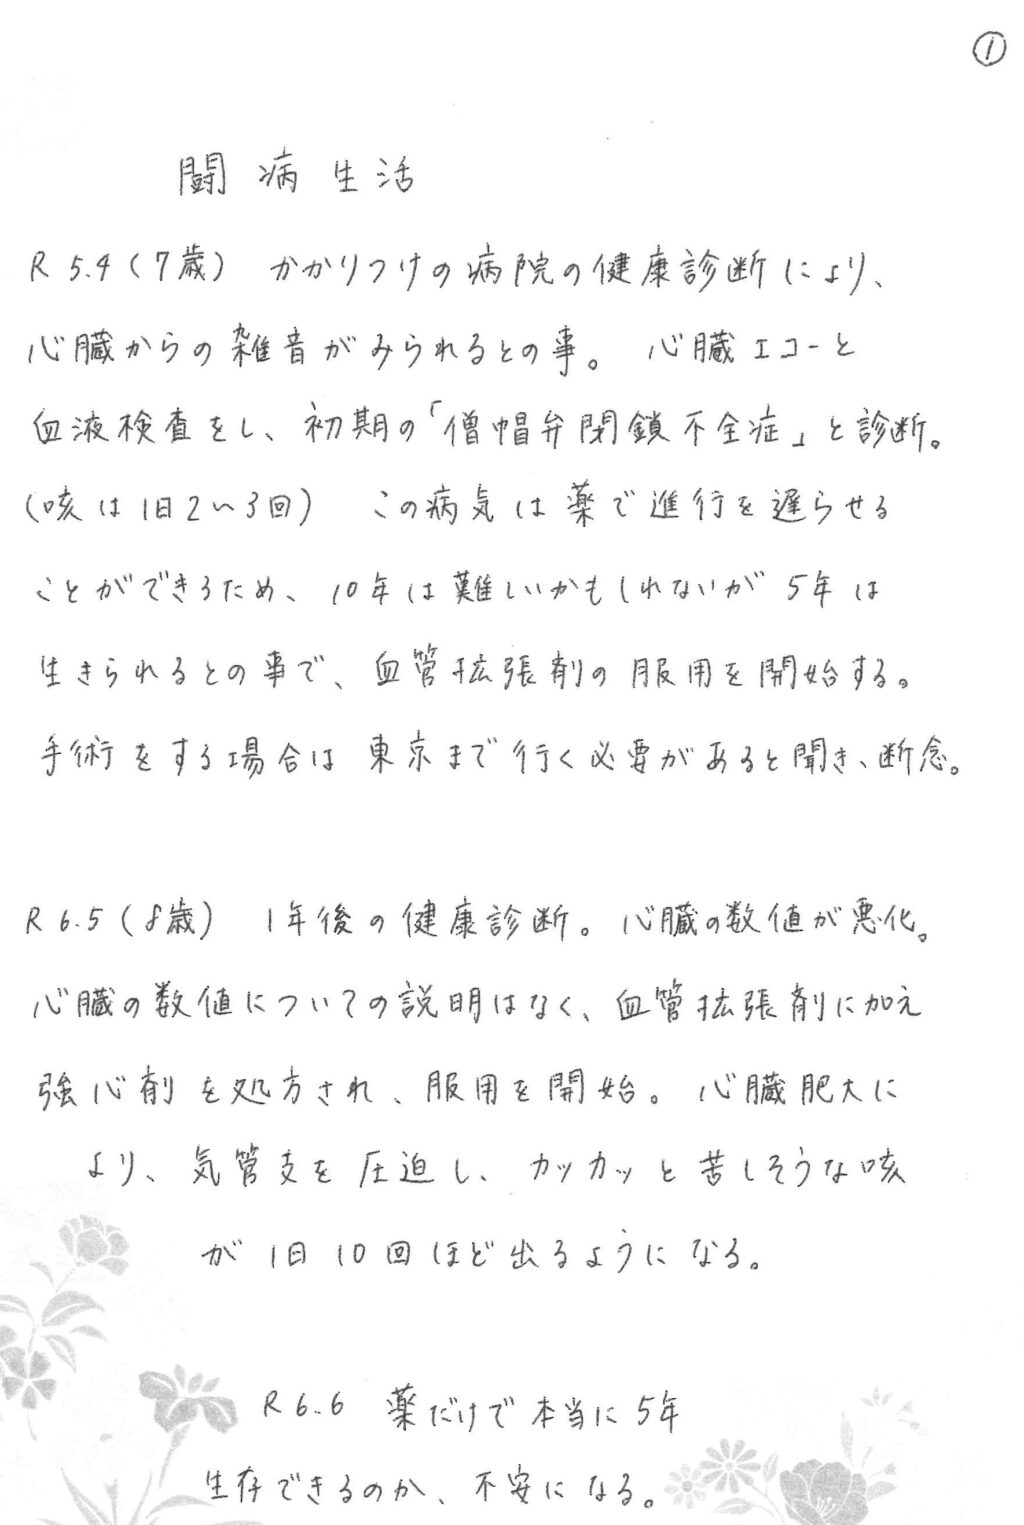 ①
闘病生活
R 5.4(7歳) かかりつけの病院の健康診断により、
心臓からの雑音がみられるとの事。 心臓エコーと
血液検査をし、初期の「僧帽弁閉鎖不全症」と診断。
(咳は1日2〜3回) この病気は薬で進行を遅らせる
ことができるため、10年は難しいかもしれないが5年は
生きられるとの事で、血管拡張剤の服用を開始する。
手術をする場合は東京まで行く必要があると聞き、断念。
R 6.5(8歳) 1年後の健康診断。心臓の数値が悪化。
心臓の数値についての説明はなく、血管拡張剤に加え
強心剤を処方され、服用を開始。心臓肥大に
より、気管支を圧迫し、カッカッと苦しそうな咳
が1日10回ほど出るようになる。
R 6.6 薬だけで本当に5年
生存できるのか、不安になる。